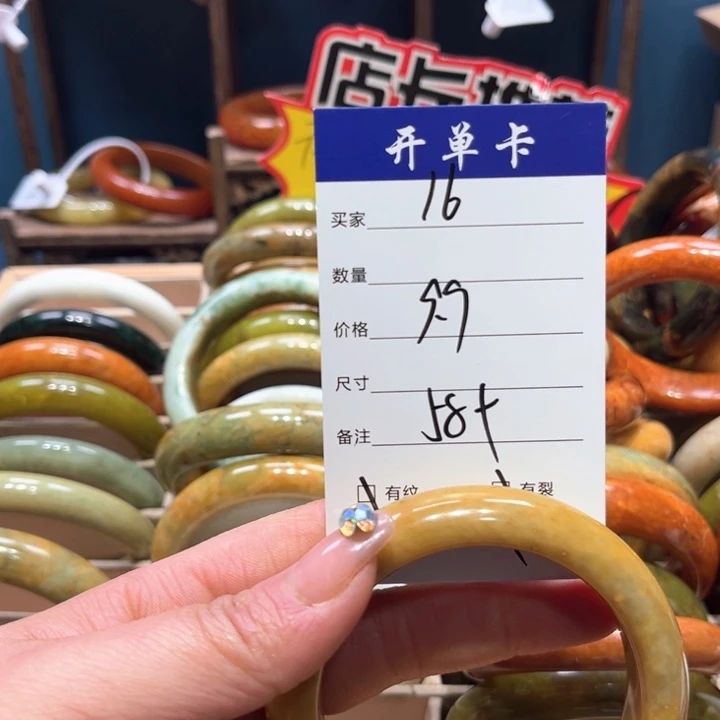 店长推荐
开单卡
买家 16
数量
价格
尺寸
备注 58+
有纹 有裂